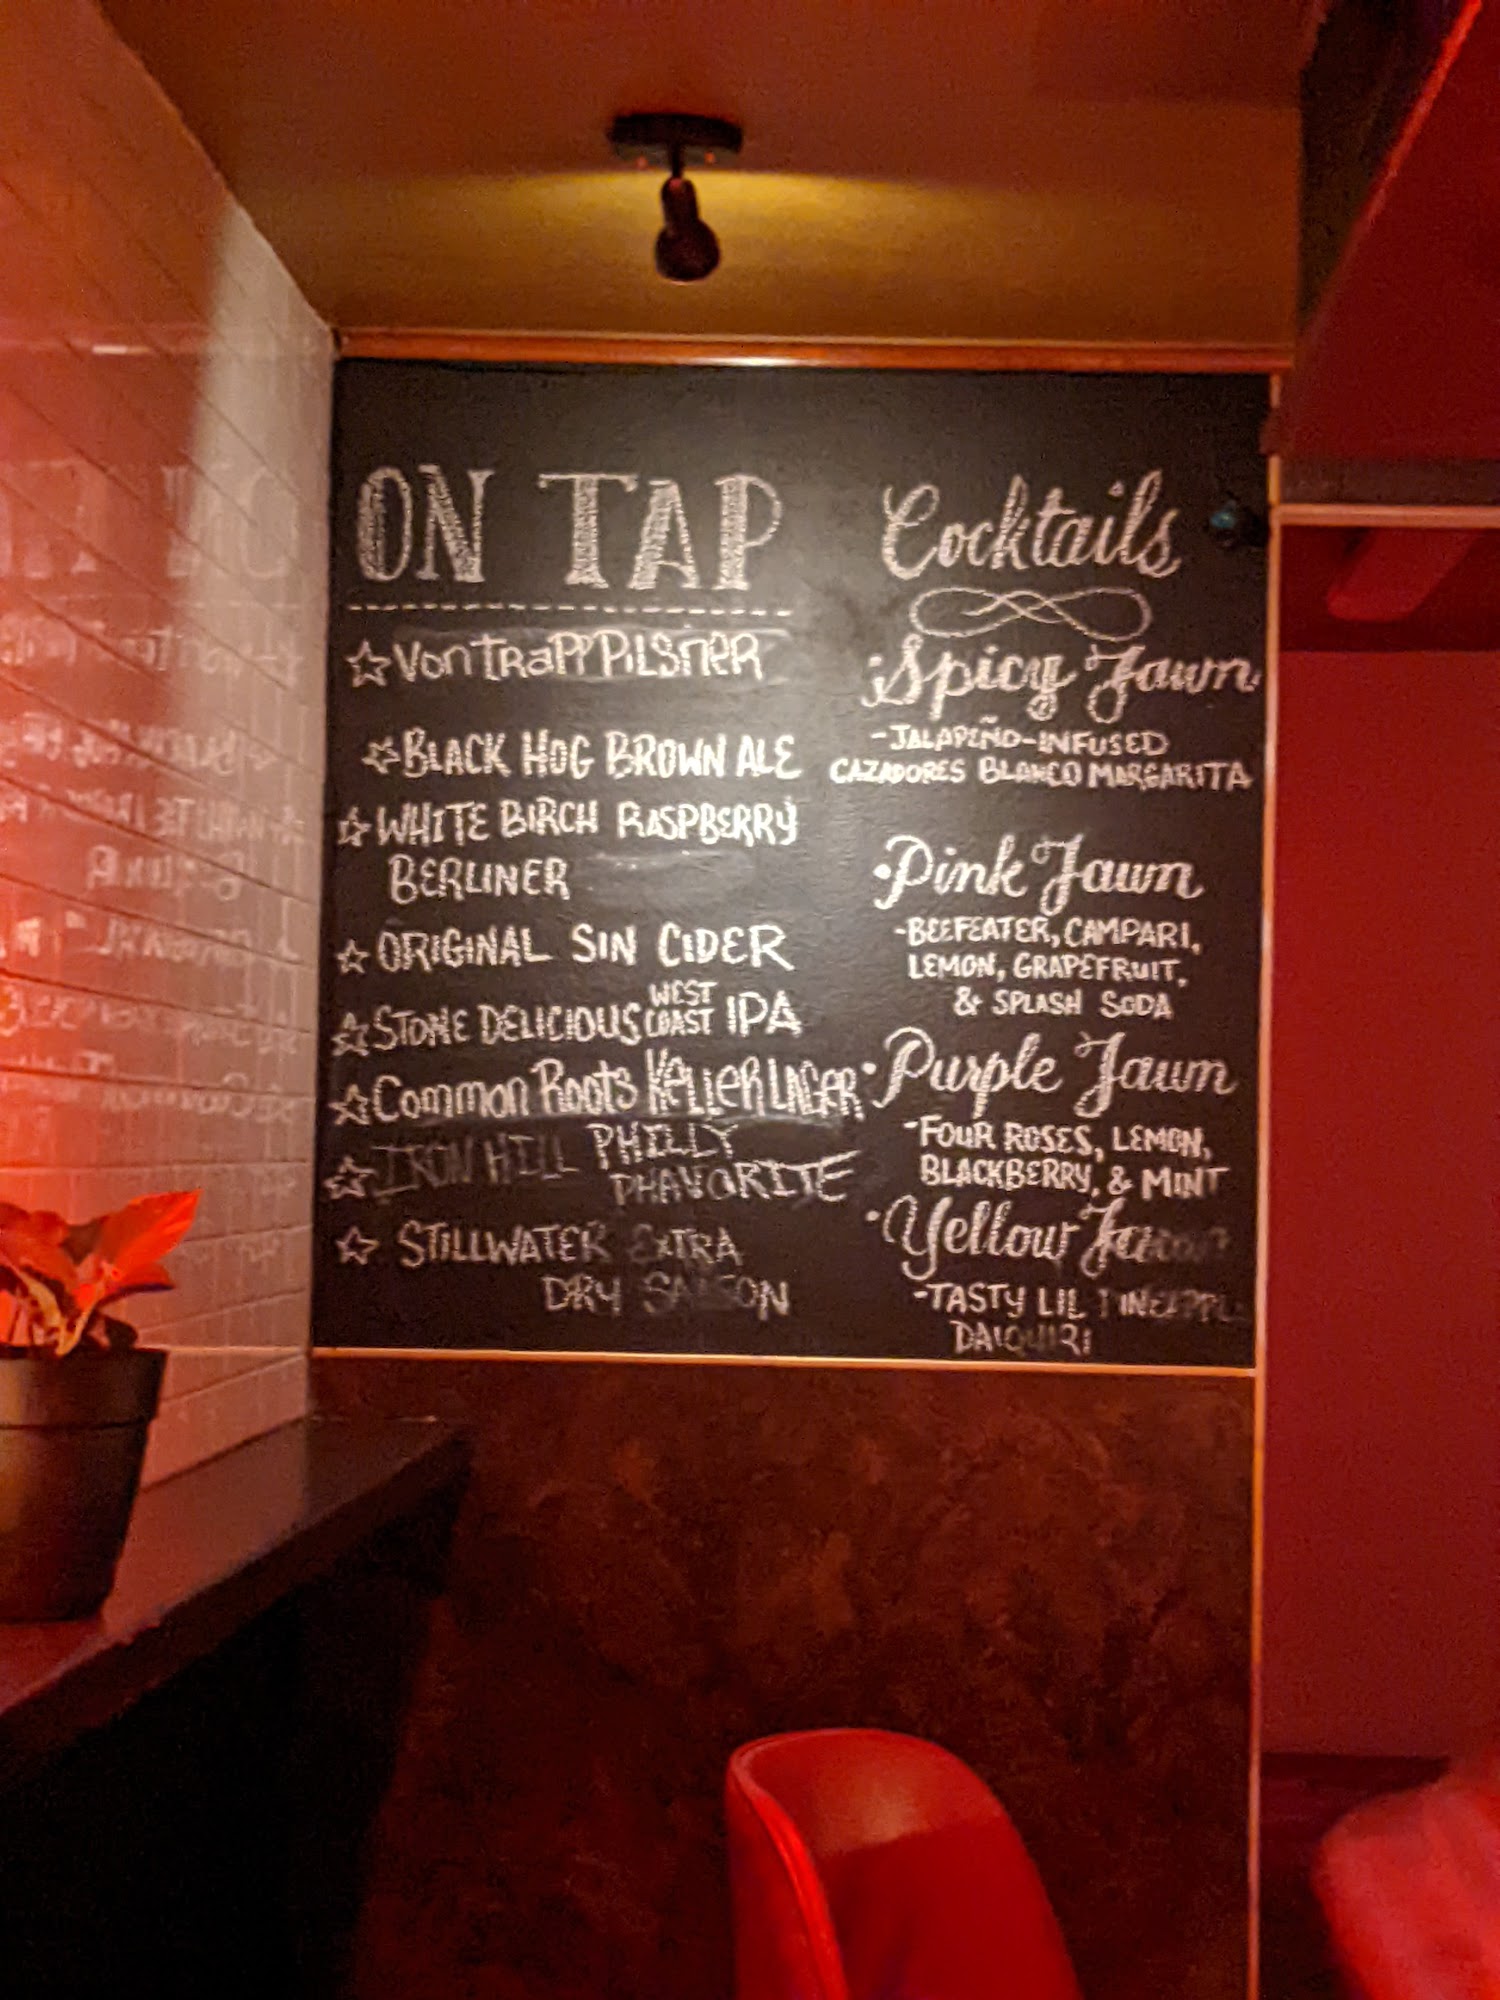 ON TAP
VonTRaPP PiLSneR
BLACK HOG BROWN ALE
WHITE BIRCH RASPBERRY
BERLINER
ORIGINAL SIN CIDER
STONE DELICIOUS WEST COAST IPA
Common Roots KeLLeRLAGER
IRON HILL PHILLY
PHAVORITE
STILLWATER EXTRA
DRY SAISON
Cocktails
Spicy Jawn
-JALAPEÑO-INFUSED
CAZADORES BLANCO MARGARITA
Pink Jawn
-BEEFEATER, CAMPARI,
LEMON, GRAPEFRUIT,
& SPLASH SODA
Purple Jawn
-FOUR ROSES, LEMON,
BLACKBERRY, & MINT
Yellow Jawn
-TASTY LIL PINEAPPLE
DAIQUIRI